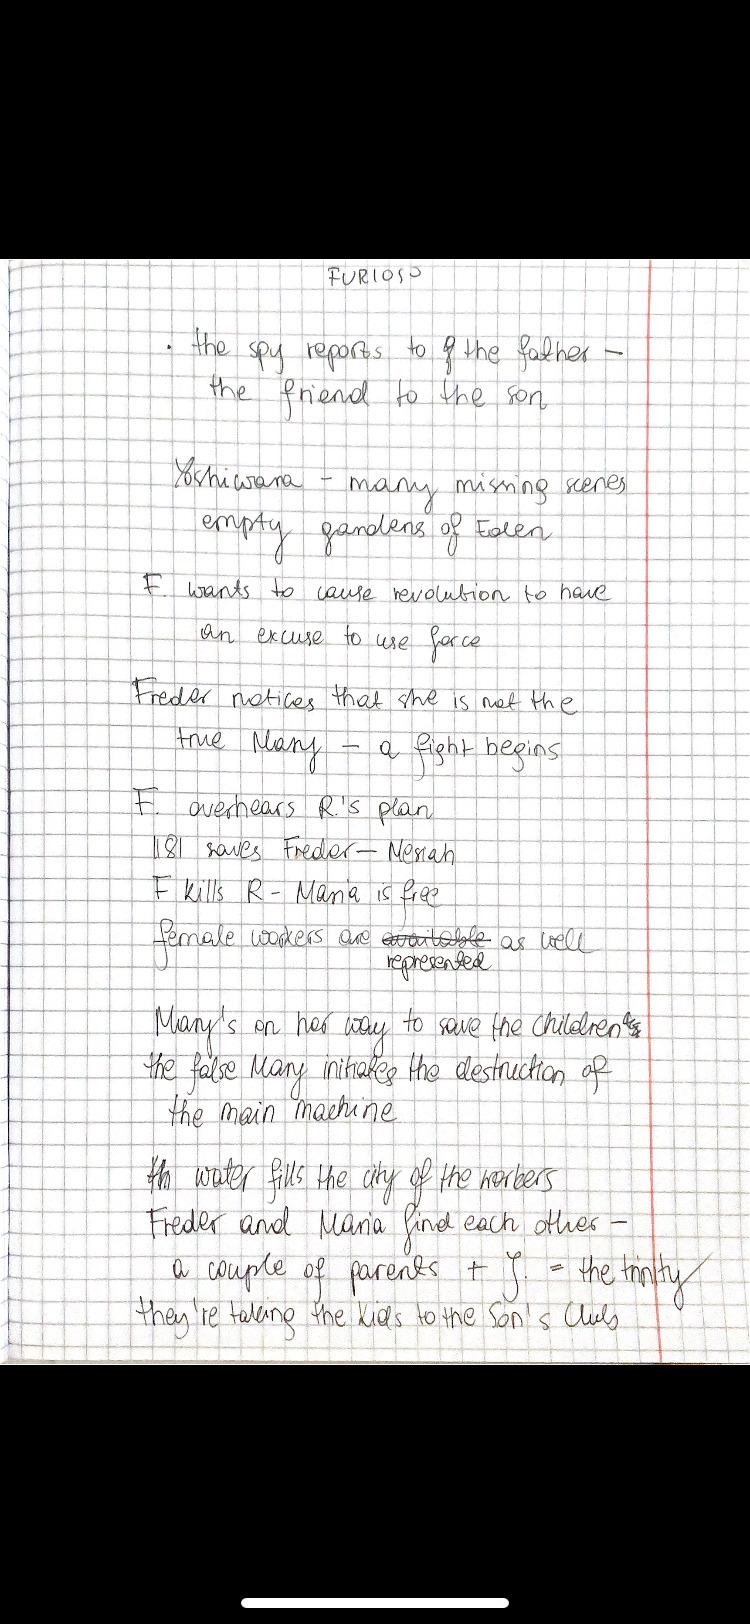 FURIOSO
· the spy reports to the father –
the friend to the son
Yoshiwara – many missing scenes
empty gardens of Eden
F. wants to cause revolution to have
an excuse to use force
Freder notices that she is not the
true Mary – a fight begins
F. overhears R.'s plan
1181 saves Freder – Mesiah
F kills R – Maria is free
female workers are available as well
represented
Mary's on her way to save the children
the false Mary initiates the destruction of
the main machine
th water fills the city of the workers
Freder and Maria find each other –
a couple of parents + J. = the trinity
they're taking the kids to the Son's Club